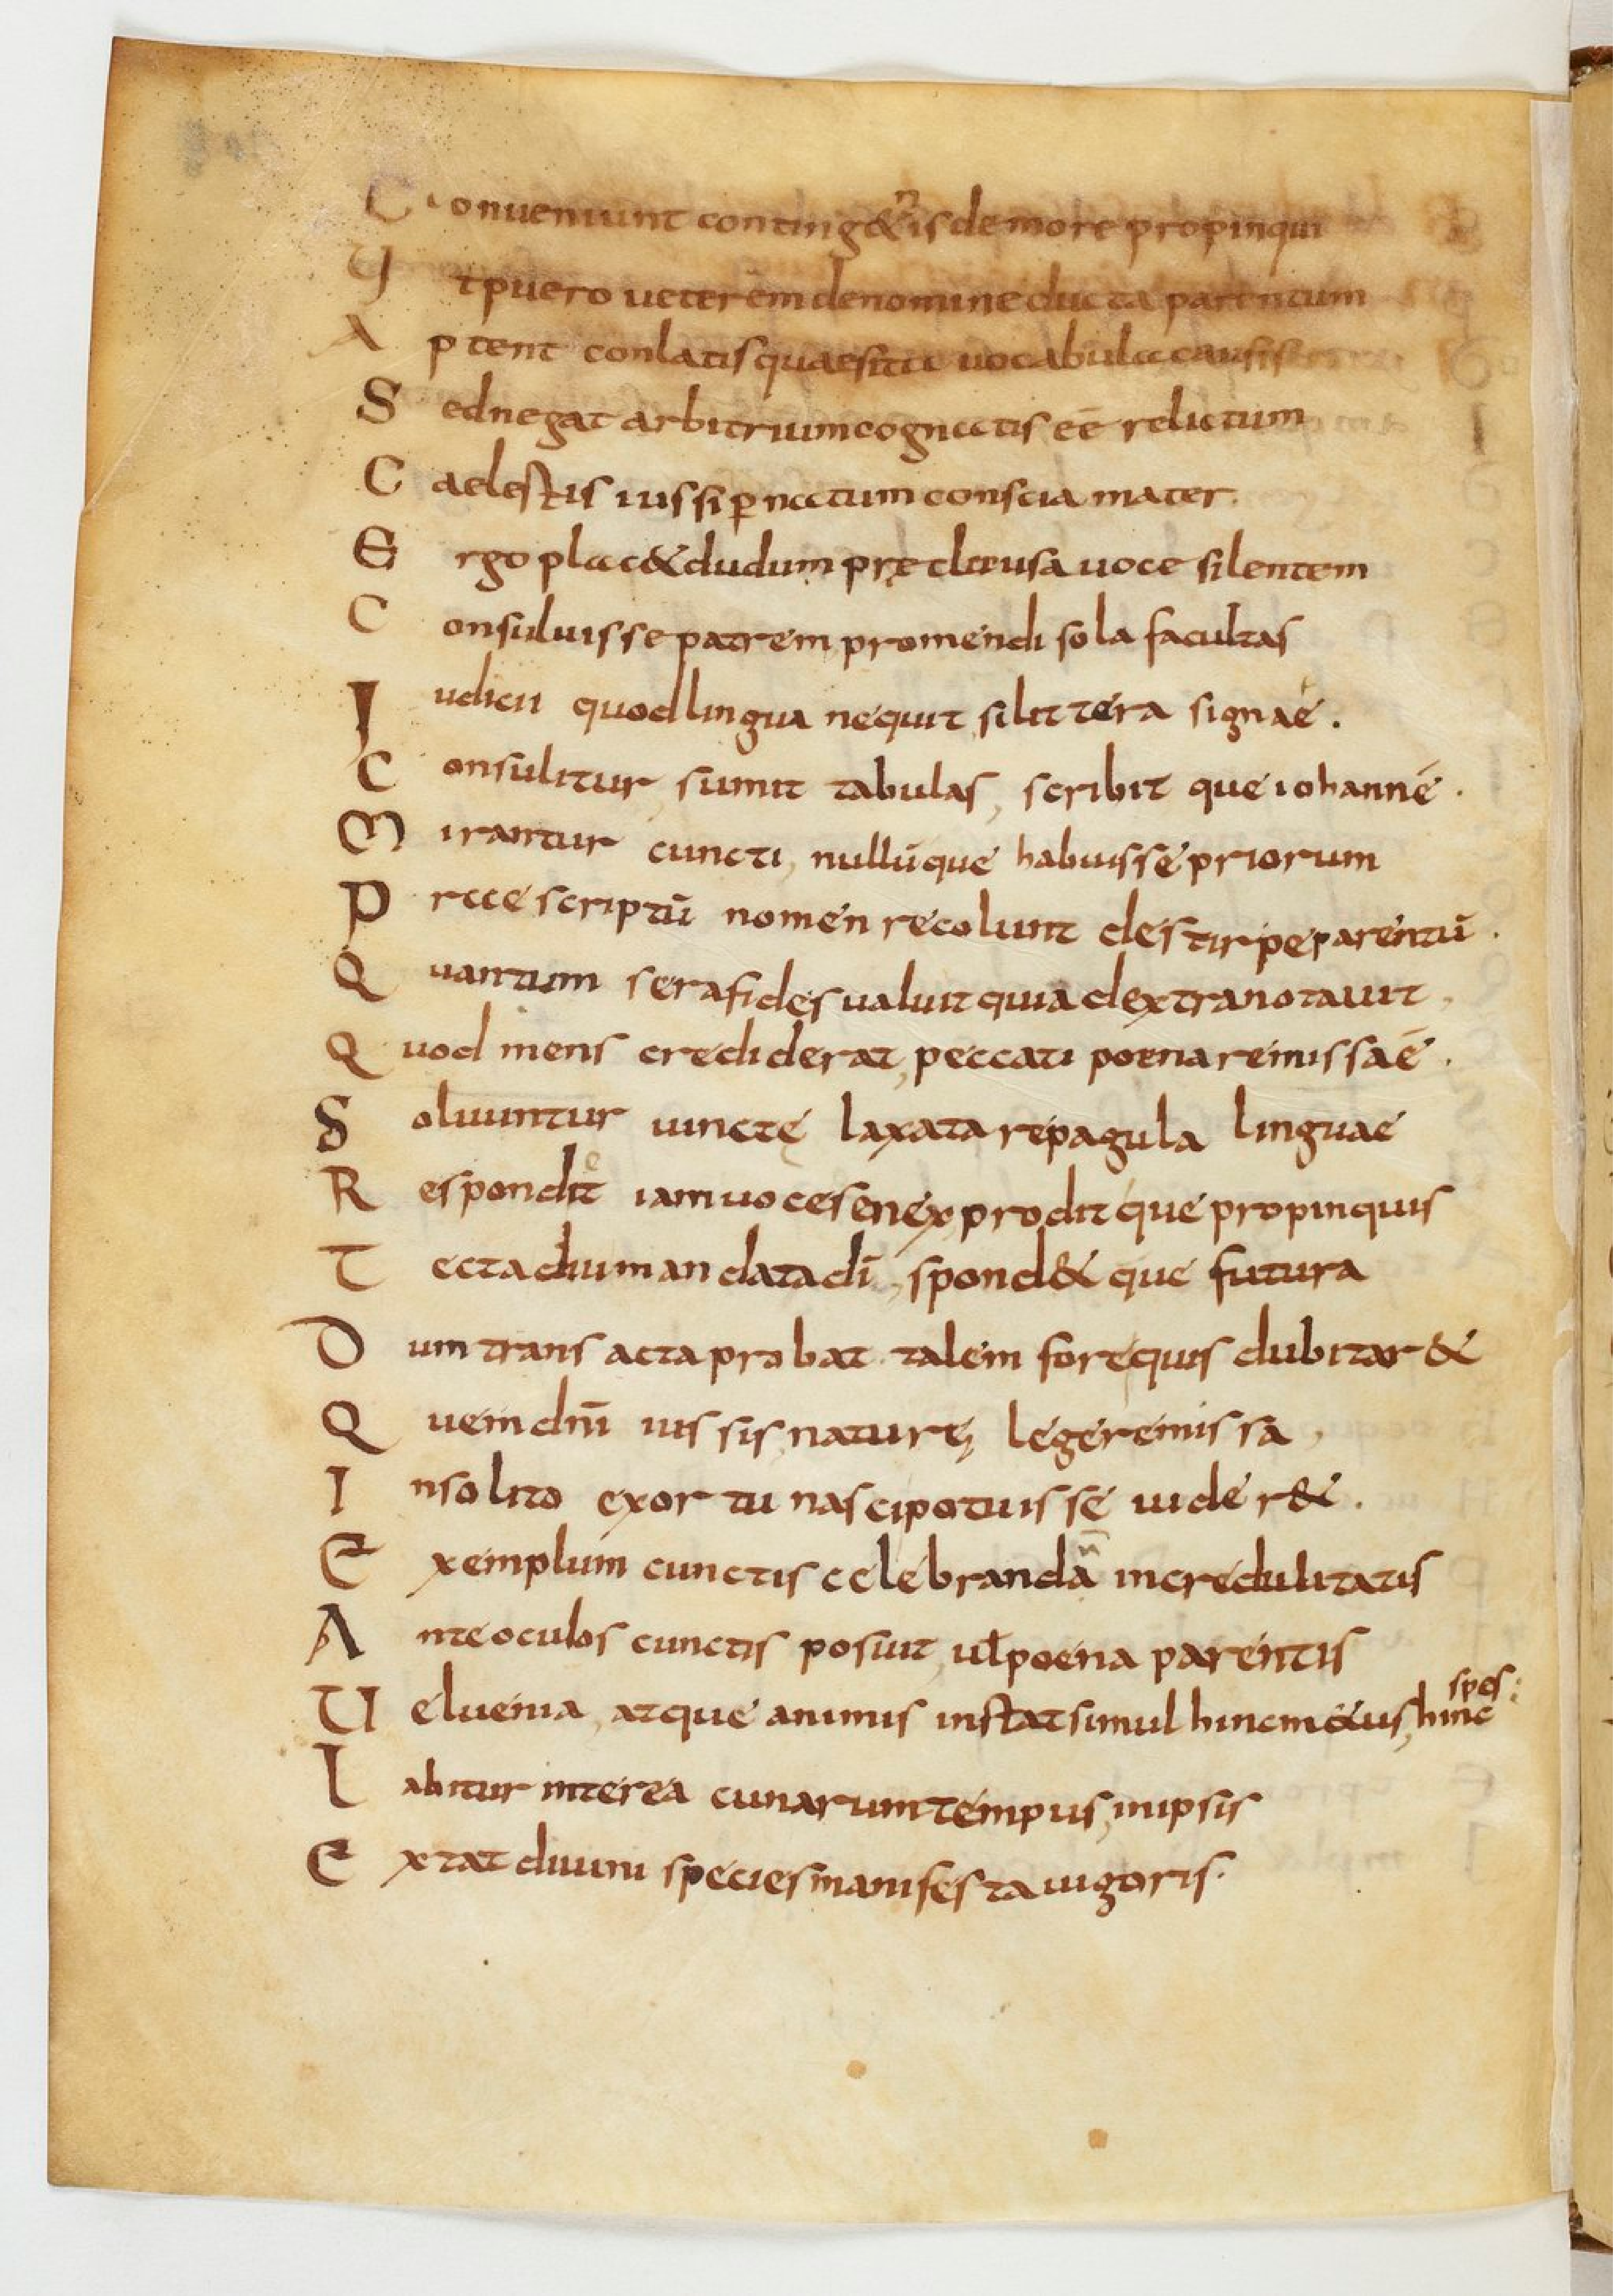 Conueniunt conting&nis de more propinqui
Vt puero ueterem de nomine ducta parentum
Aptent conlatis quaesita uocabula causis
Sed negat arbitrium cognatis eē relictum
Caelestis iussi p̄ natum conscia mater.
Ergo plac& dudum pręclausa uoce silentem
Consuluisse patrem, promendi sola facultas
Iudicii quod lingua nequit, si littera signaē.
Consulitur, sumit tabulas, scribit que iohannē.
Mirantur cuncti, nullūque habuisse priorum
Praescriptū nomen recolunt de stirpe parentū.
Quantum sera fides ualuit quia dextra notauit,
Quod mens crediderat, peccati poena remissaē.
Soluuntur uinctę laxata repagula linguae
Respondit iam uoce senex, prodit que propinquis
Tecta diu mandata dī, spond& que futura
Dum transacta probat. talem fore quis dubitar&
Quem dn̄i iussis, naturę lege remissa,
Insolito exortu nasci potuisse uider&.
Exemplum cunctis celebrandā incredulitatis
Ante oculos cunctis posuit, ul̄ poena parentis
Uel uenia, atque animis instat simul hinc m&us, hinc spes:
Labitur interea cunarum tempus, inipsis
Extat diuini species manifesta uigoris.